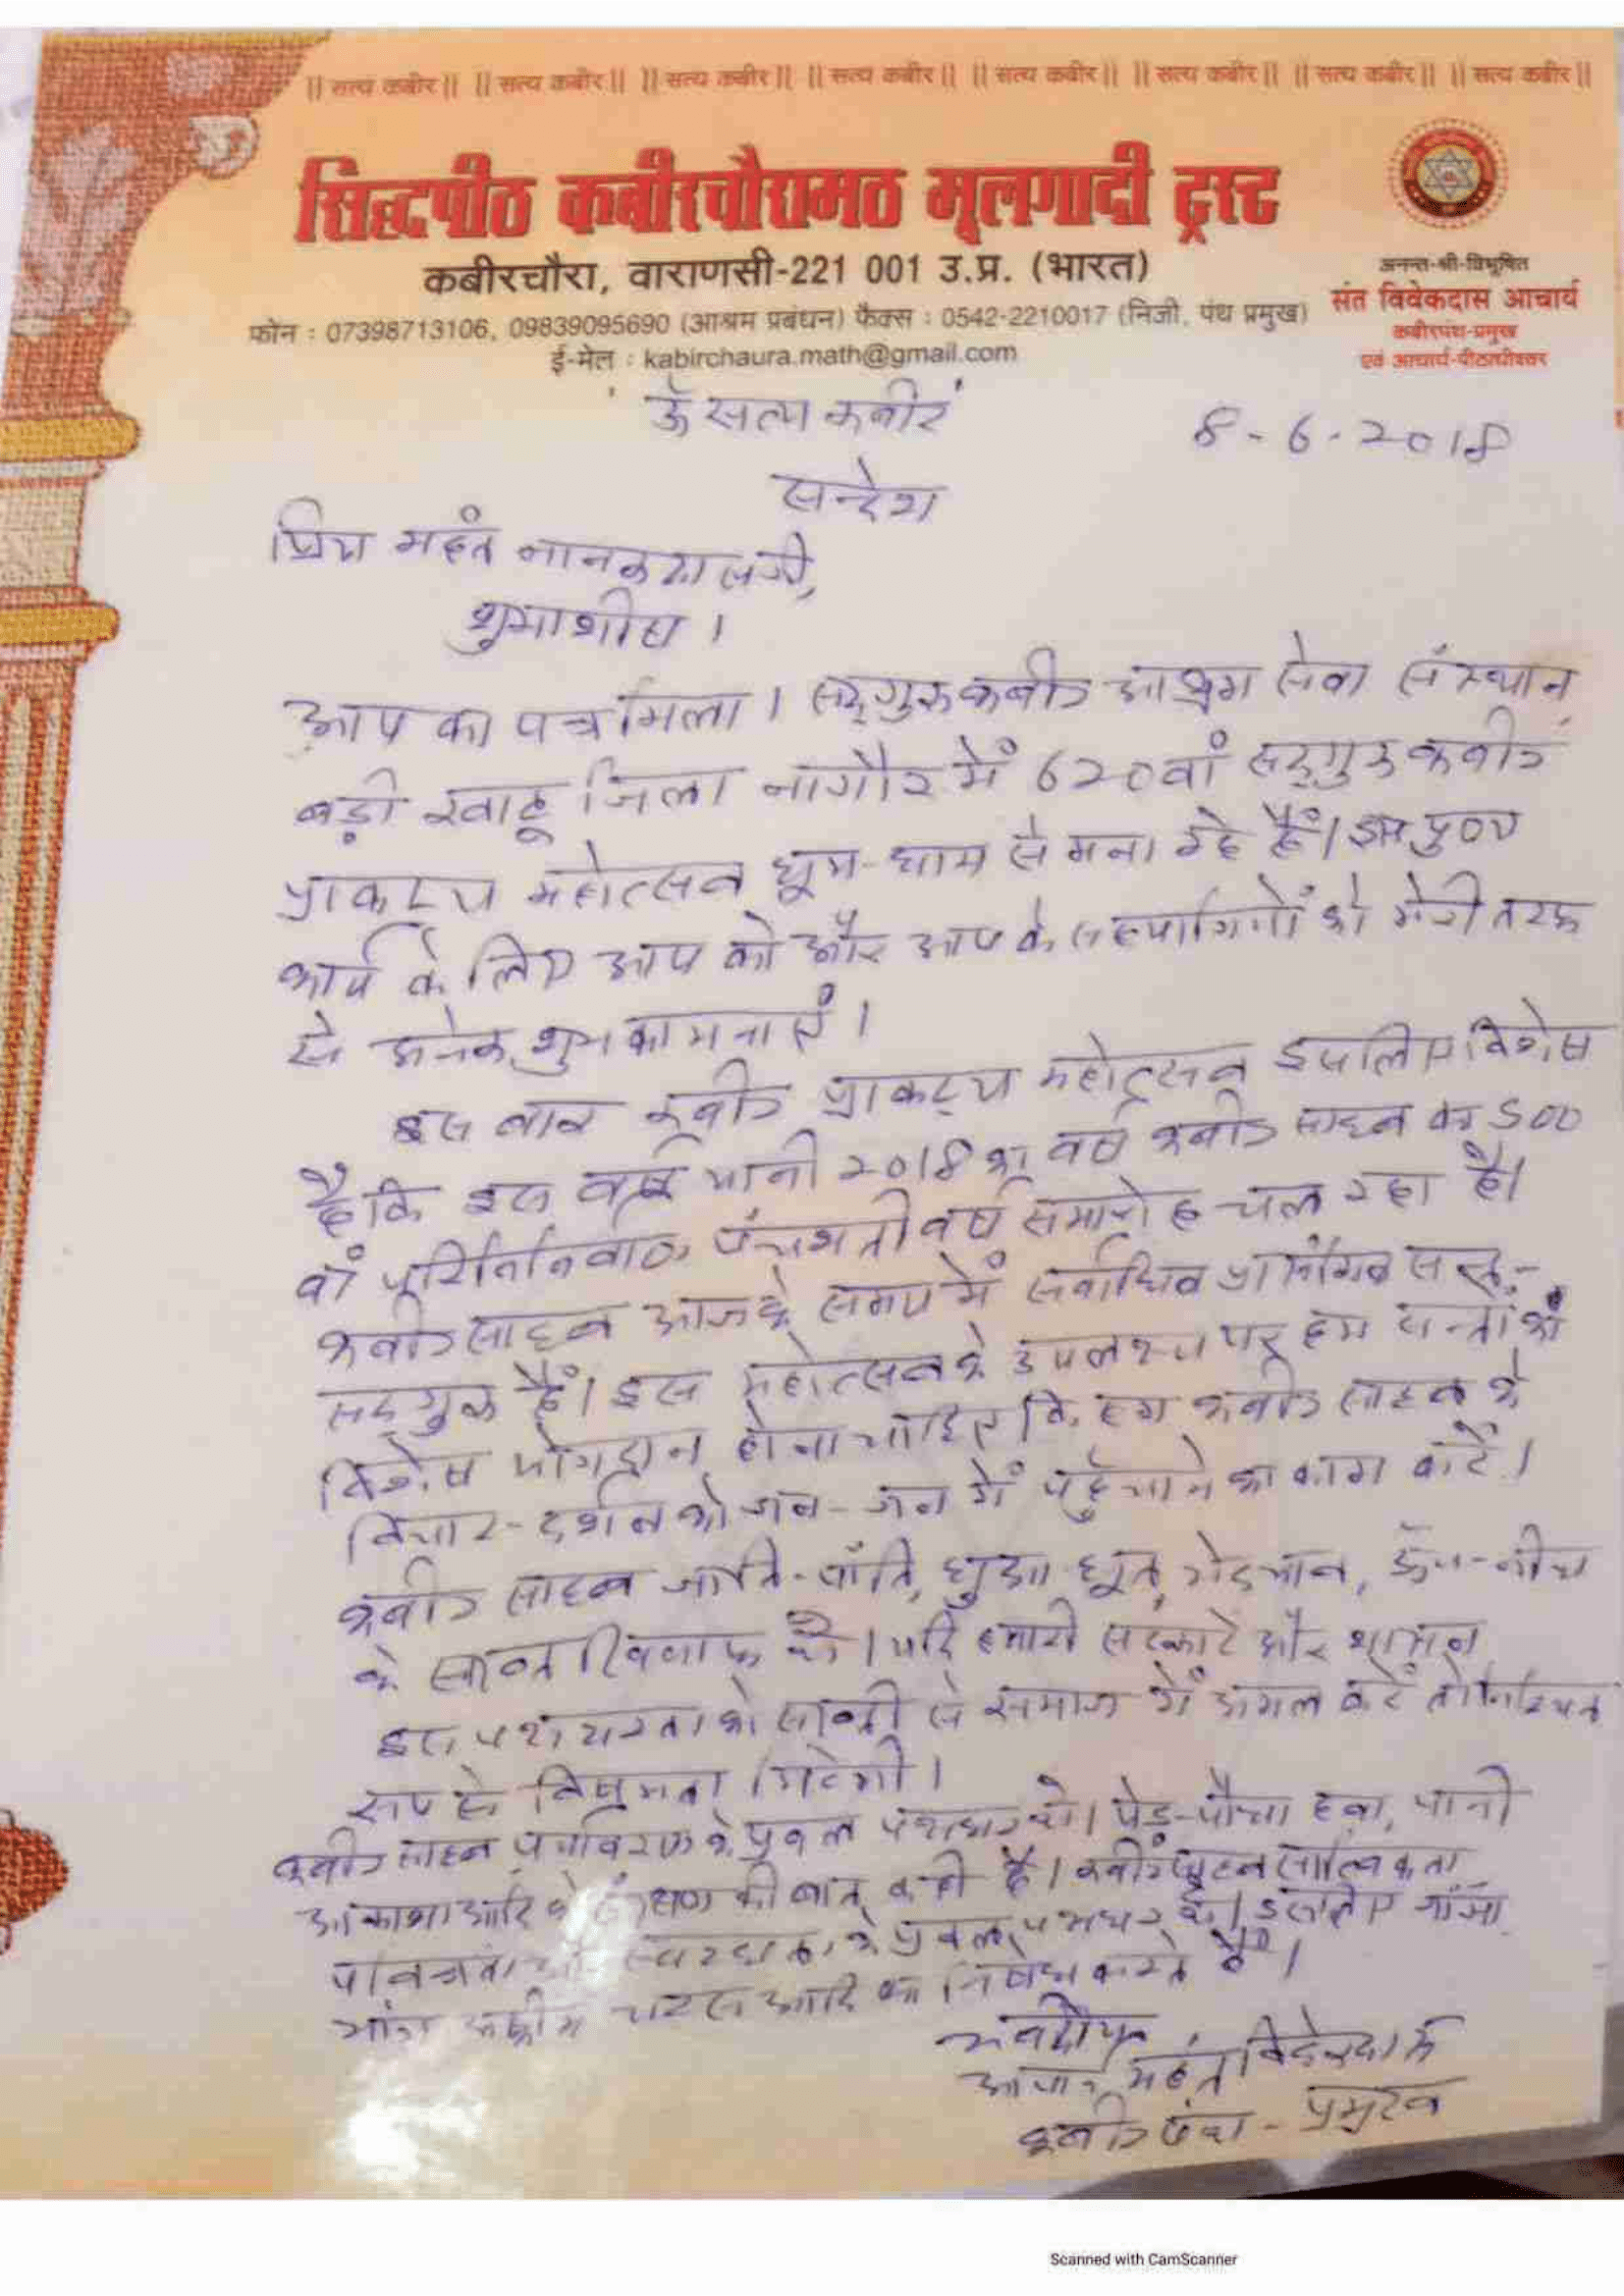 ॥ सत्य कबीर ॥ ॥ सत्य कबीर ॥ ॥ सत्य कबीर ॥ ॥ सत्य कबीर ॥ ॥ सत्य कबीर ॥ ॥ सत्य कबीर ॥ ॥ सत्य कबीर ॥ ॥ सत्य कबीर ॥
सिद्धपीठ कबीरचौरामठ मूलगादी ट्रस्ट
कबीरचौरा, वाराणसी-221 001 उ.प्र. (भारत)
फोन : 07398713106, 09839095690 (आश्रम प्रबंधन) फैक्स : 0542-2210017 (निजी, पंथ प्रमुख)
ई-मेल : kabirchaura.math@gmail.com
अनन्त-श्री-विभूषित
संत विवेकदास आचार्य
कबीरपंथ-प्रमुख
एवं आचार्य-पीठाधीश्वर
ॐ सत्य कबीर
8-6-2018
सन्देश
प्रिय महंत नानकदासजी,
शुभाशीष।
आप का पत्र मिला। सद्गुरु कबीर आश्रम सेवा संस्थान
बड़ी खाटू जिला नागौर में 620वां सद्गुरु कबीर
प्राकट्य महोत्सव धूम-धाम से मना रहे हैं। इस पुण्य
कार्य के लिए आप को और आप के सहयोगियों को मेरी तरफ
से अनेक शुभकामनाएं।
इस बार कबीर प्राकट्य महोत्सव इसलिए विशेष
है कि इस वर्ष यानी 2018 का वर्ष कबीर साहब का 500
वां परिनिर्वाण पंचशती वर्ष समारोह चल रहा है।
कबीर साहब आज के समय में सर्वाधिक प्रासंगिक सन्त-
सद्गुरु हैं। इस महोत्सव के उपलक्ष्य पर हम सन्तों का
विशेष योगदान होना चाहिए कि हम कबीर साहब के
विचार-दर्शन को जन-जन में पहुँचाने का काम करें।
कबीर साहब जाति-पाँति, छुआ-छूत, भेदभाव, ऊँच-नीच
के सख्त खिलाफ थे। यदि हमारी सरकारें और शासन
इस पक्षधरता को सख्ती से समाज में अमल करें तो निश्चित
रूप से विषमता मिटेगी।
कबीर साहब पर्यावरण के प्रबल पक्षधर थे। पेड़-पौधा हवा, पानी
आकाश आदि के संरक्षण की बात कही है। कबीर साहब सात्विकता
पवित्रता के प्रबल पक्षधर थे। इसलिए गाँजा
भांग अफीम चरस आदि का निषेध करते हैं।
भवदीय
आचार्य महंत विवेकदास
कबीर पंथ - प्रमुख
Scanned with CamScanner